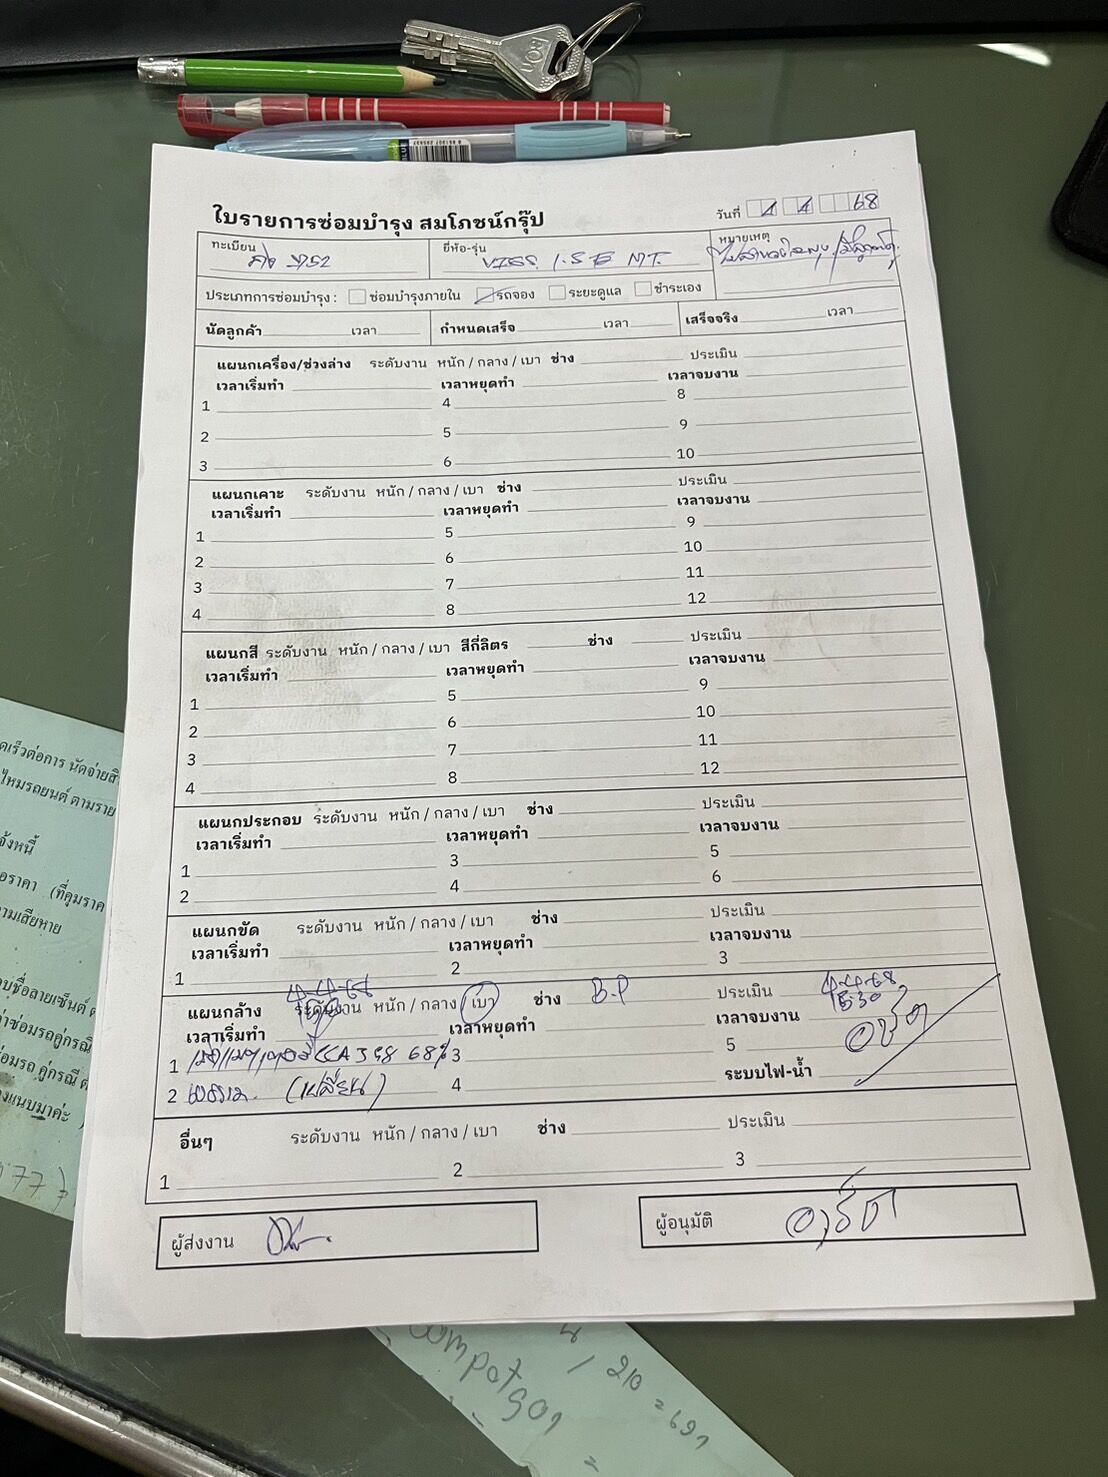 ใบรายการซ่อมบำรุง สมโภชน์กรุ๊ป
วันที่ 4 4 68
ทะเบียน
ยี่ห้อ-รุ่น VIOS 1.5 E MT.
หมายเหตุ
ประเภทการซ่อมบำรุง : ซ่อมบำรุงภายใน รถจอง ระยะดูแล ชำระเอง
นัดลูกค้า เวลา กำหนดเสร็จ เวลา เสร็จจริง เวลา
แผนกเครื่อง/ช่วงล่าง ระดับงาน หนัก / กลาง / เบา ช่าง ประเมิน
เวลาเริ่มทำ เวลาหยุดทำ เวลาจบงาน
1 4 8
2 5 9
3 6 10
แผนกเคาะ ระดับงาน หนัก / กลาง / เบา ช่าง ประเมิน
เวลาเริ่มทำ เวลาหยุดทำ เวลาจบงาน
1 5 9
2 6 10
3 7 11
4 8 12
แผนกสี ระดับงาน หนัก / กลาง / เบา สีกี่ลิตร ช่าง ประเมิน
เวลาเริ่มทำ เวลาหยุดทำ เวลาจบงาน
1 5 9
2 6 10
3 7 11
4 8 12
แผนกประกอบ ระดับงาน หนัก / กลาง / เบา ช่าง ประเมิน
เวลาเริ่มทำ เวลาหยุดทำ เวลาจบงาน
1 3 5
2 4 6
แผนกขัด ระดับงาน หนัก / กลาง / เบา ช่าง ประเมิน
เวลาเริ่มทำ เวลาหยุดทำ เวลาจบงาน
1 2 3
4-4-68
แผนกล้าง ระดับงาน หนัก / กลาง / เบา ช่าง B.P ประเมิน 4-4-68
เวลาเริ่มทำ เวลาหยุดทำ เวลาจบงาน
1 CCA 398 68% 3 5
2 (เปลี่ยน) 4 ระบบไฟ-น้ำ
อื่นๆ ระดับงาน หนัก / กลาง / เบา ช่าง ประเมิน
1 2 3
ผู้ส่งงาน
ผู้อนุมัติ